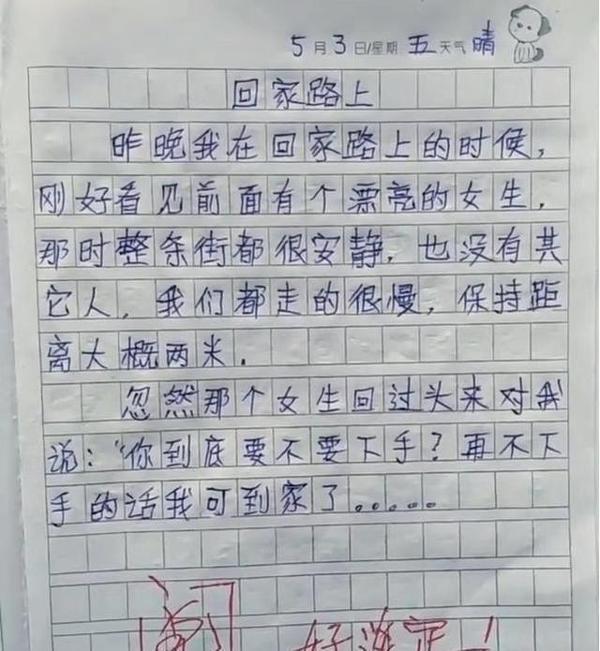 5月3日/星期五天气晴
回家路上
昨晚我在回家路上的时候,
刚好看见前面有个漂亮的女生.
那时整条街都很安静.也没有其
它人.我们都走的很慢,保持距
离大概两米.
忽然那个女生回过头来对我
说:"你到底要不要下手?再不下
手的话我可到家了.....
阅